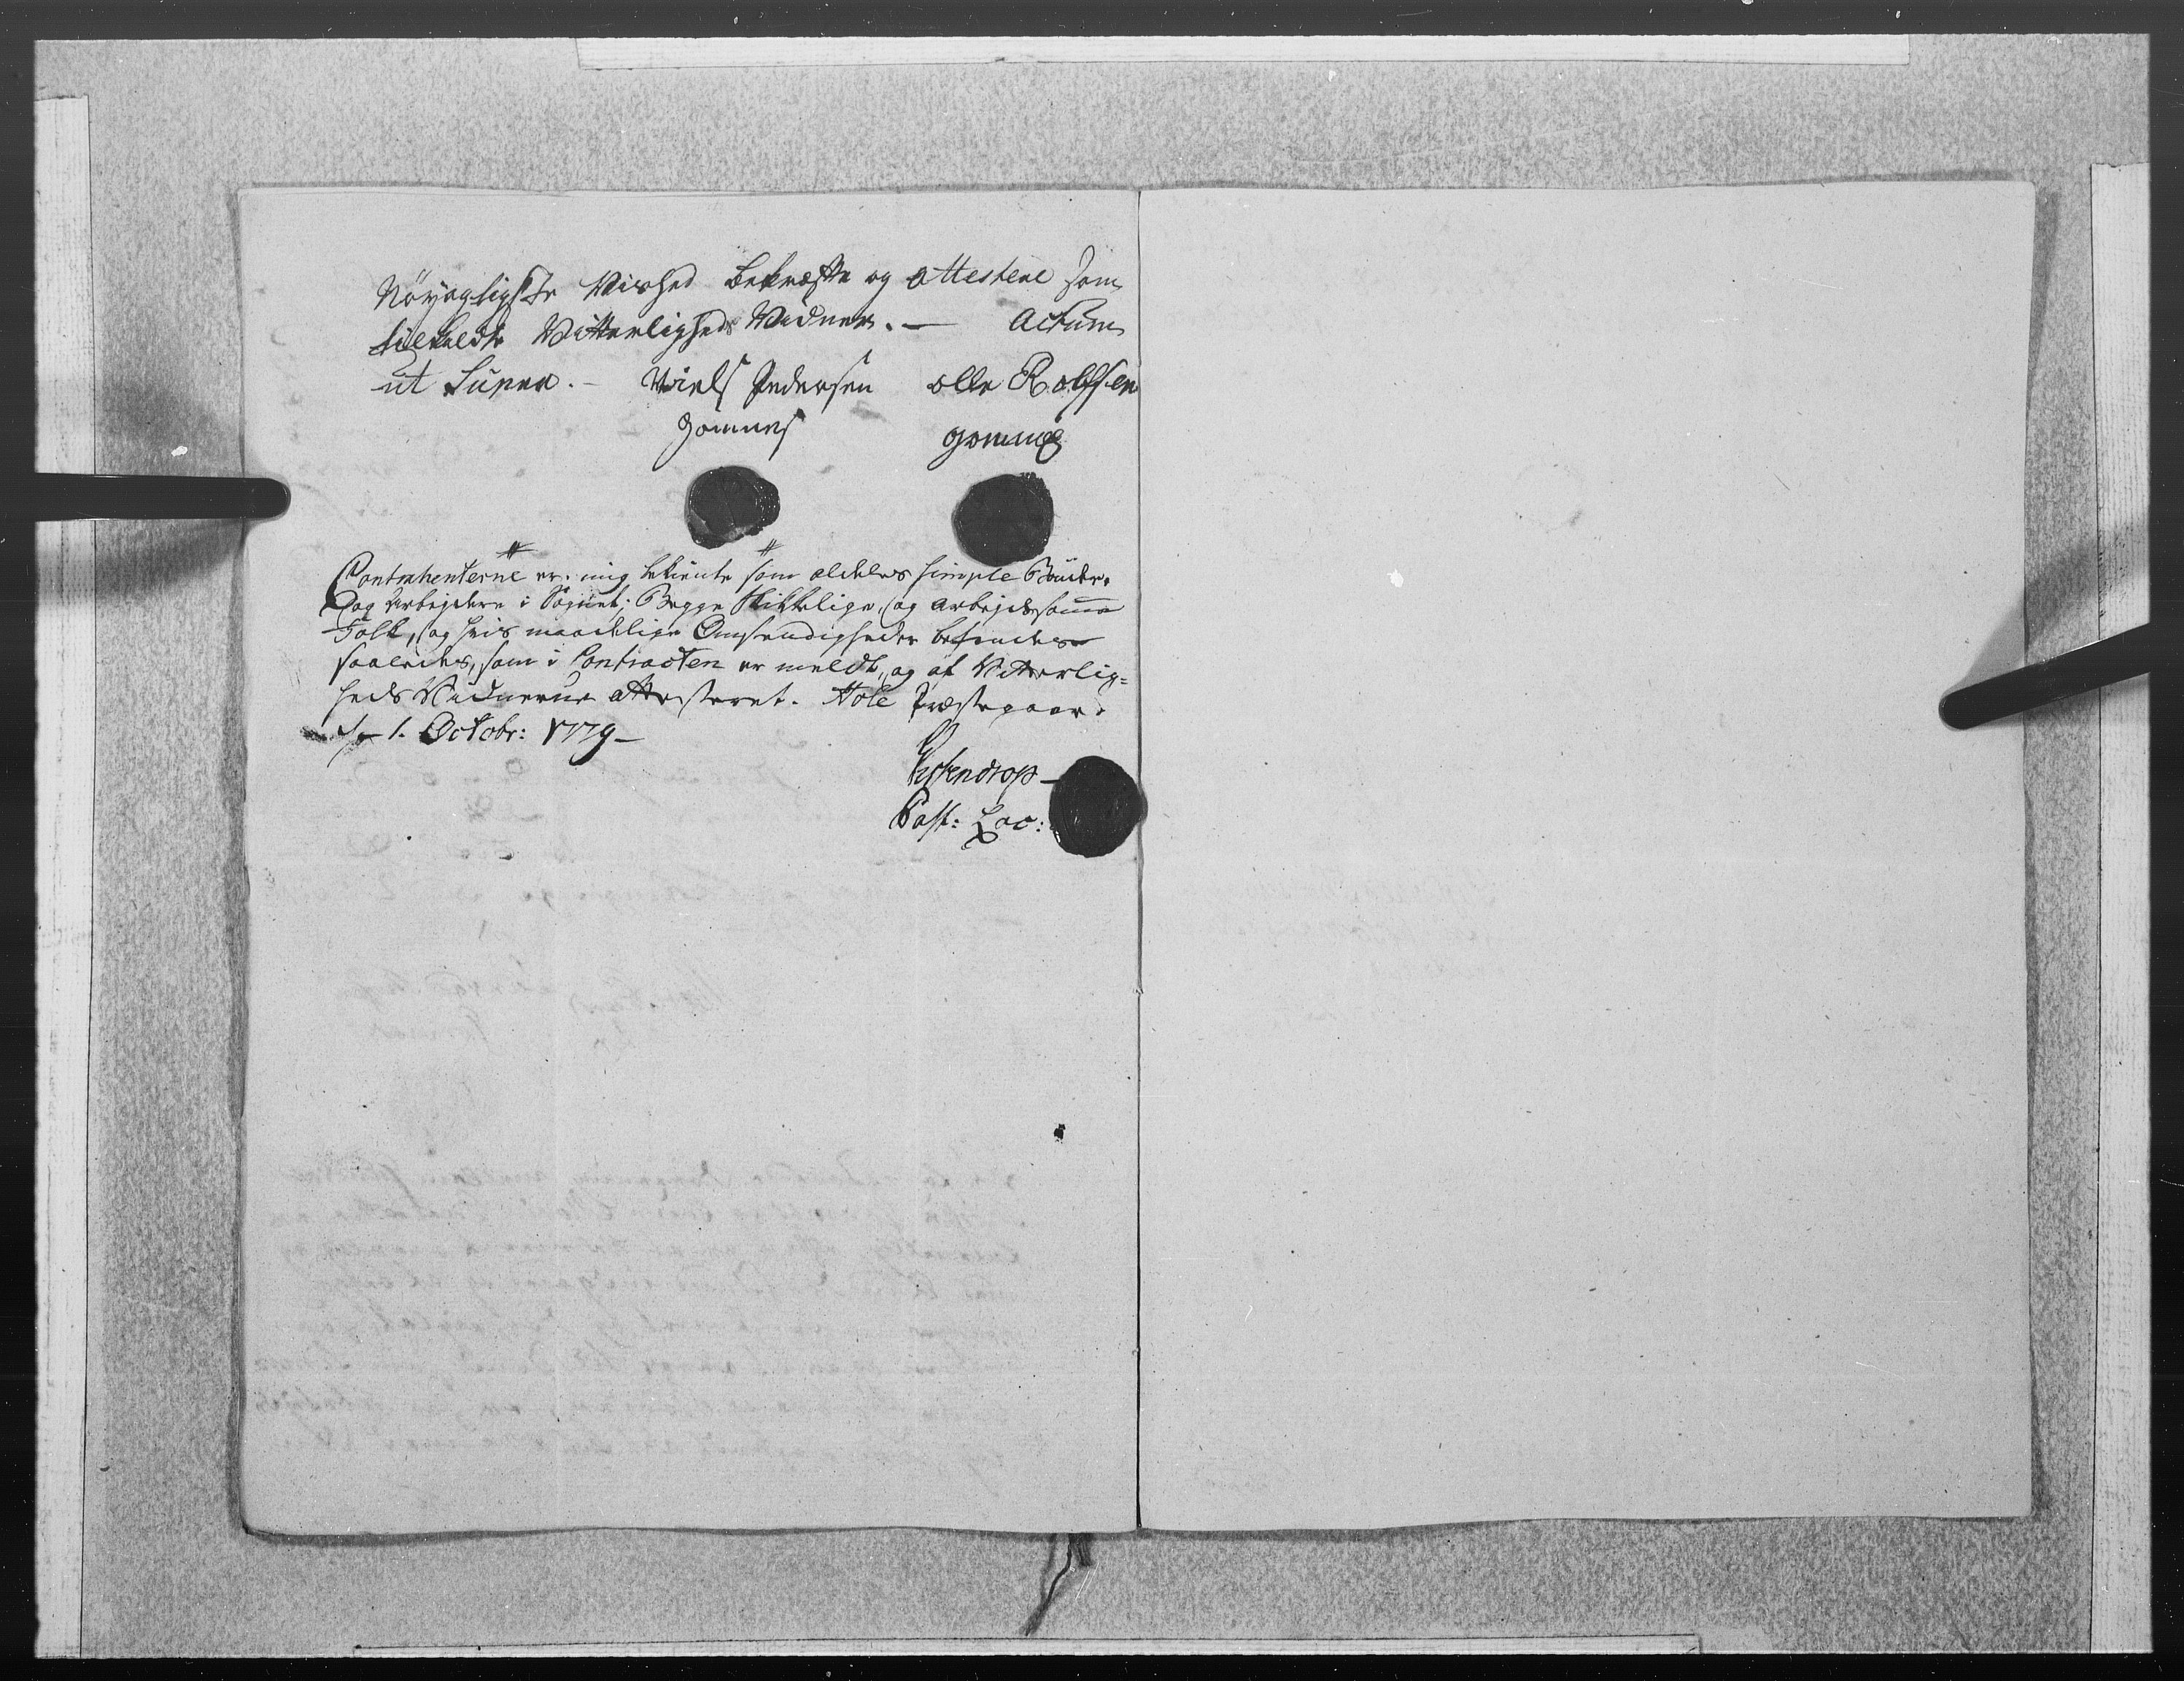 Nöyagtigste Vished bekræfte og attestere som
tilkaldte Vitterligheds Vidner. — Actum
ut Supra. — Niels Pedersen olle Rolfsen
Gomnes gomnes
Contrahenterne er mig bekiente som aldeles simple Bönder
og Arbejdere i Sognet; Begge Skikkelige, og arbejdsomme
Folk, og hvis maadelige Omstendigheder befindes
saaledes, som i Contracten er meldt, og af Vitterlig=
heds Vidnerne attesteret. Hole Præstegaard
d. 1. Octobr: 1779 —
Past: Loc: